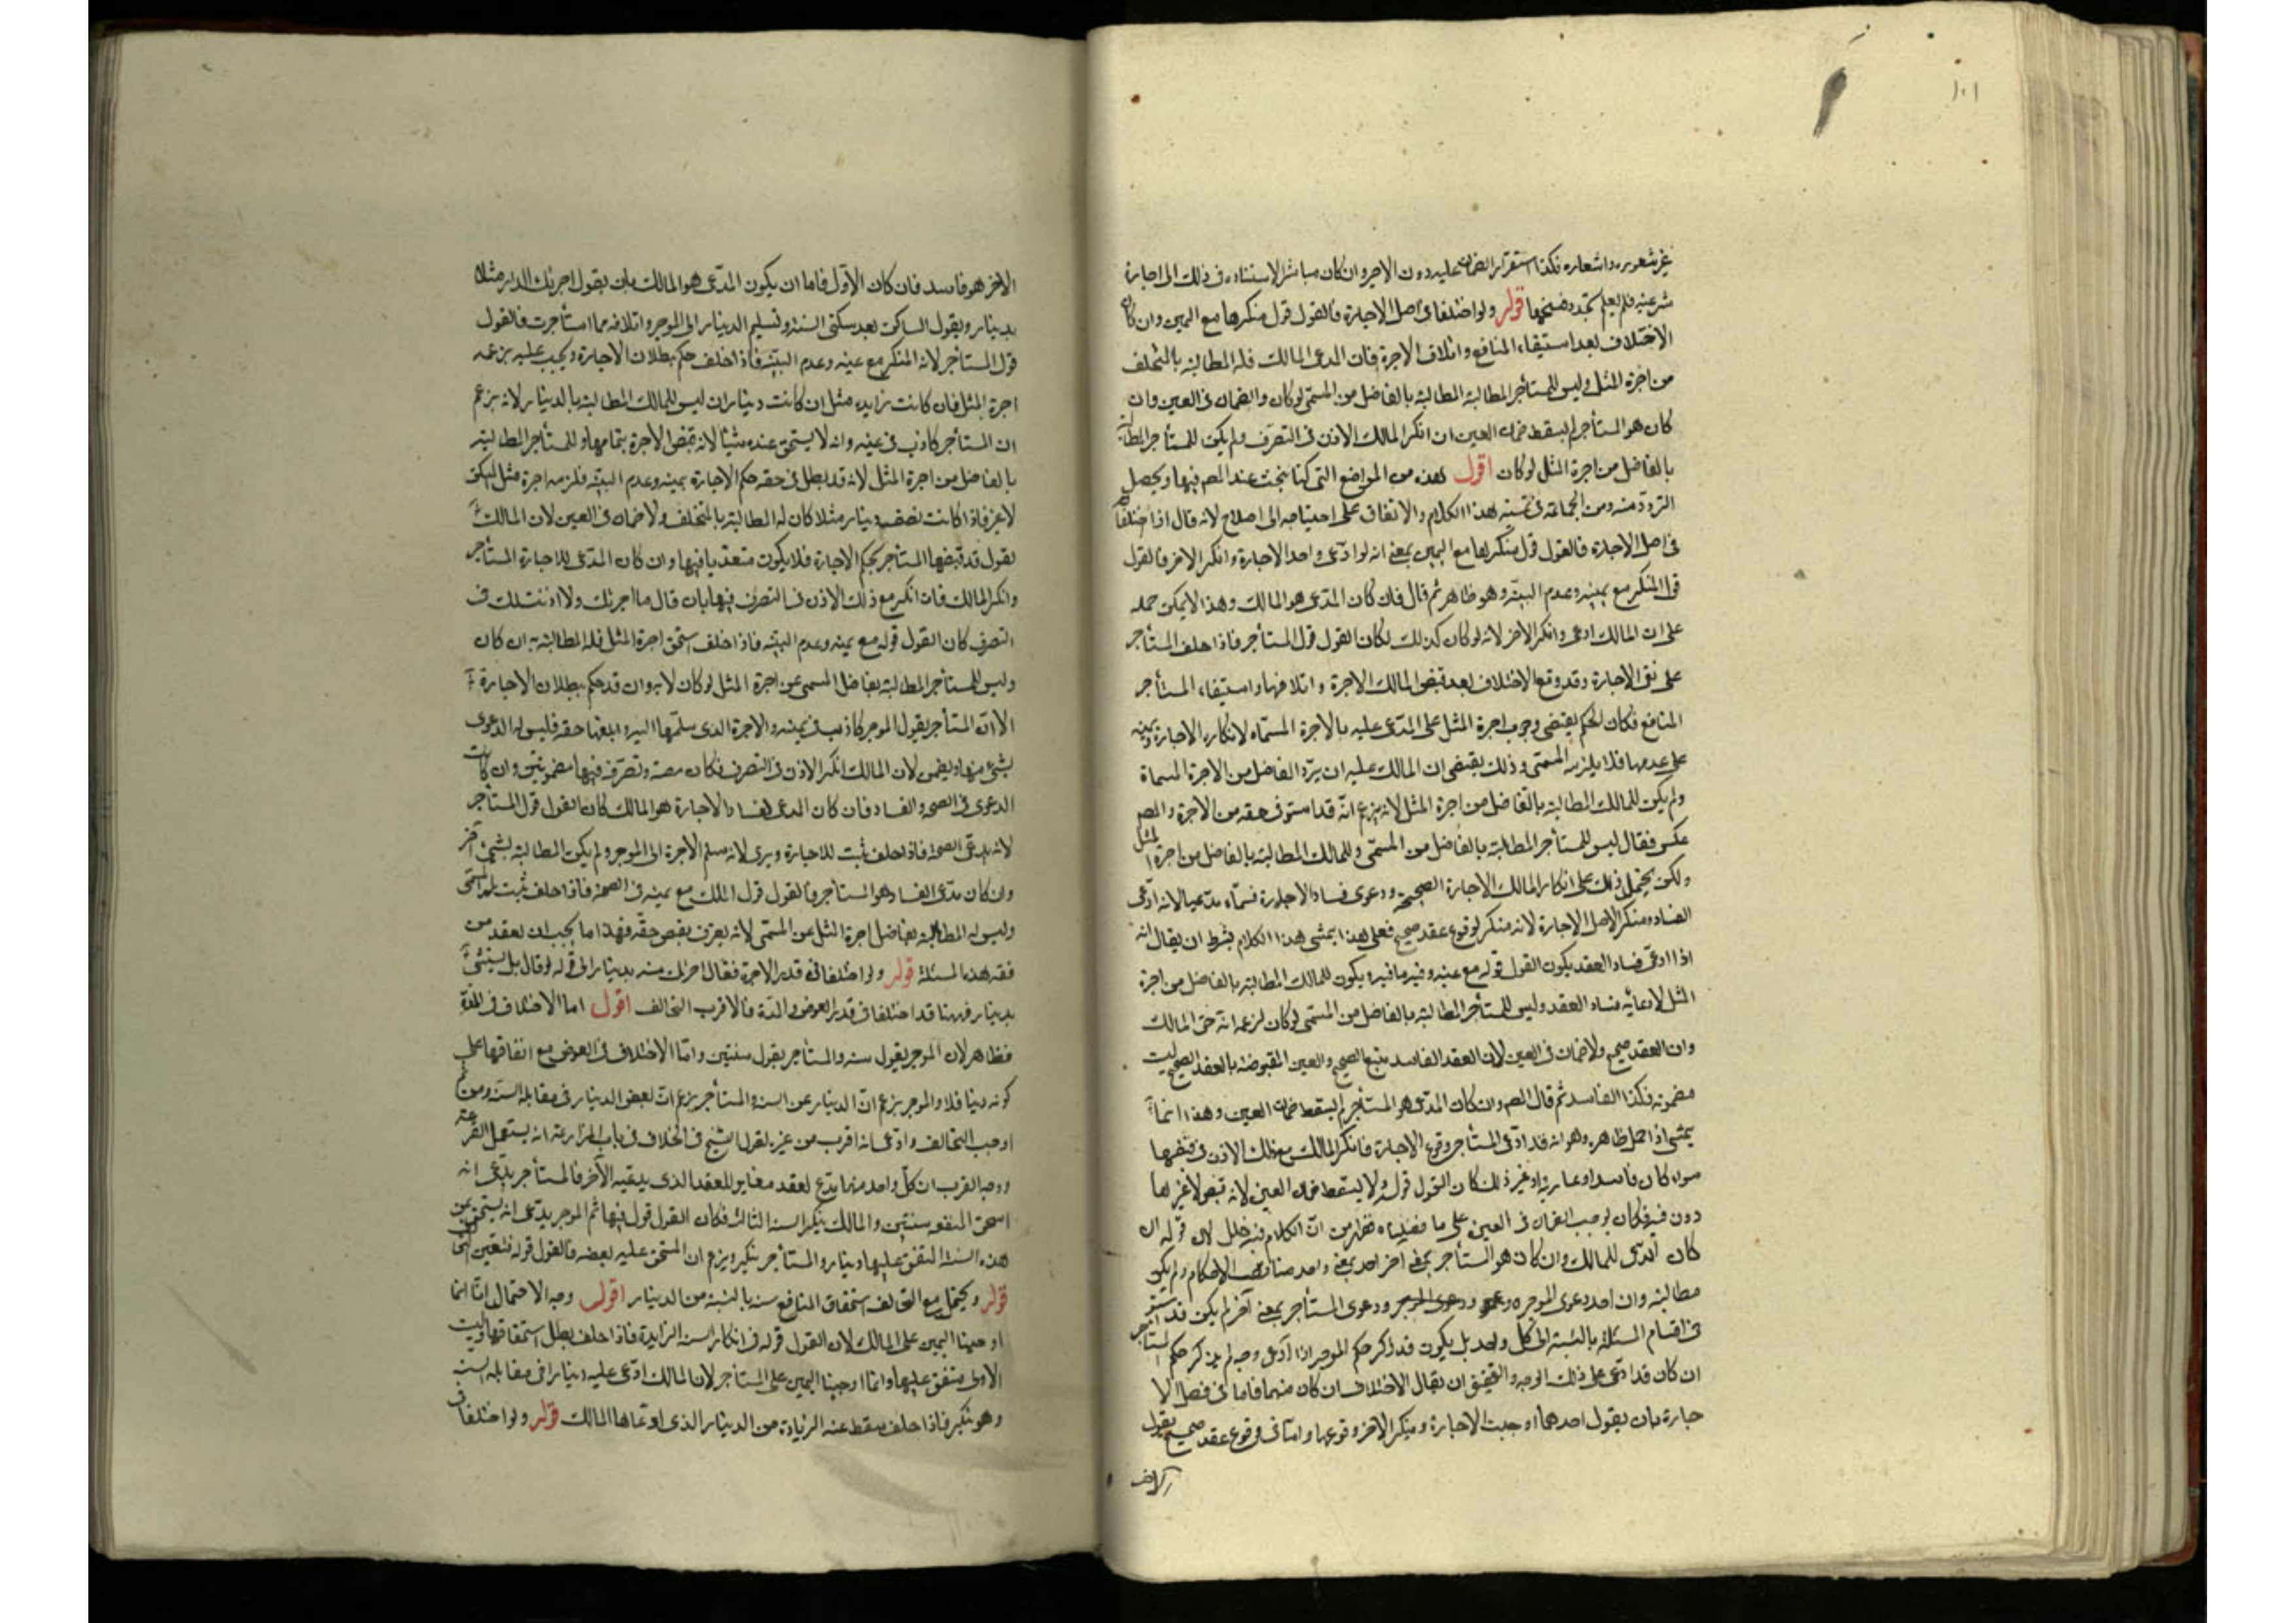 ١٠١
غير شعوره واشعاره فكذا استقرار الضمان عليه دون الاجير وان كان مباشرا لاستناده في ذلك الى اجارة
شرعية فلم يعلم تجدد فسخها قوله ولو اختلفا في اصل الاجارة فالقول قول منكرها مع اليمين وان كان
الاختلاف بعد استيفاء المنافع واتلاف الاجرة فان ادعى المالك فله المطالبة بالمتخلف
من اجرة المثل وليس للمستأجر المطالبة بالفاضل من المسمى لو كان ولا ضمان في العين وان
كان هو المستأجر لم يسقط ضمان العين ان انكر المالك الاذن في التصرف ولم يكن للمستأجر المطالبة
بالفاضل من اجرة المثل لو كان اقول هذه من المواضع التي كنا نبحث عند المص فيها ويحصل
التردد منه ومن الجماعة في تمشية هذا الكلام والاتفاق على احتياجه الى اصلاح لانه قال اذا اختلفا
في اصل الاجارة فالقول قول منكرها مع اليمين بمعنى انه لو ادعى واحد الاجارة وانكر الاخر فالقول
قول المنكر مع يمينه وعدم البينة وهو ظاهر ثم قال فان كان المدعى هو المالك وهذا لا يمكن حمله
على ان المالك ادعى وانكر الاخر لانه لو كان كذلك لكان القول قول المستأجر فاذا حلف المستأجر
على نفى الاجارة وقد وقع الاختلاف بعد قبض المالك الاجرة واتلافها واستيفاء المستأجر
المنافع فكان الحكم يقتضي وجوب اجرة المثل على المدعى عليه بالاجرة المسماه لانكاره الاجارة ويمينه
على عدمها فلا يلزمه المسمى وذلك يقتضي ان المالك عليه ان يرد الفاضل من الاجرة المسماة
ولم يكن للمالك المطالبة بالفاضل من اجرة المثل لانه يزعم انه قد استوفى حقه من الاجرة والمص
عكس فقال ليس للمستأجر المطالبة بالفاضل من المسمى وللمالك المطالبة بالفاضل من اجرة المثل
ولكن يحتمل ذلك على انكار المالك الاجارة الصحيحة ودعوى فساد الاجارة فسماه مدعيا لانه ادعى
الفساد ومنكر الاصل الاجارة لانه منكر لوقوع عقد صحيح فعلى هذا يمشى هذا الكلام بشرط ان يقال انه
اذا ادعى فساد العقد يكون القول قوله مع يمينه وفيه ما فيه ويكون للمالك المطالبة بالفاضل من اجرة
المثل لادعائه فساد العقد وليس للمستأجر المطالبة بالفاضل من المسمى لو كان لزعمه انه حق المالك
وان العقد صحيح ولا ضمان في العين لان العقد الفاسد يتبع الصحيح والعين المقبوضة بالعقد الصحيح ليست
مضمونه فكذا الفاسد ثم قال المص وان كان المدعى هو المستأجر لم يسقط ضمان العين وهذا انما
يمشى اذا حمل ظاهره وهو انه قد ادعى المستأجر وقوع الاجارة فانكر المالك مع ذلك الاذن في قبضها
سواء كان فاسدا او عارية او غير ذلك كان القول قوله ولا يسقط ضمان العين لانه قبض لاغيرها
دون فيه فكان يوجب الضمان في العين على ما فصلناه فظهر من ان الكلام فيه خلل لان قوله ان
كان المدعى للمالك وان كان هو المستأجر بمعنى اخر احد بمعنى واحد الاحكام ولم يكن
مطالبته وان احد دعوى الموجر ودعوى المستأجر بمعنى آخر لم يكن قد استوفى
في اقسام المسئلة بالنسبة الى كل واحد بل يكون قد ذكر حكم الموجر اذا ادعى وجه لم يذكر حكم المستأجر
ان كان قد ادعى على ذلك الوجه والتحقيق ان يقال الاختلاف ان كان منهما فاما في فصل الا
جارة بان يقول احدهما اوجبت الاجارة وينكر الاخر وقوعها واما في وقوع عقد صحيح يقول
الاخر
الاخر هو فاسد فان كان الاول فاما ان يكون المدعى هو المالك بان يقول اجرتك الدار مثلا
بدينار ويقول الساكن بعد سكنى السنة وتسليم الدينار الى الموجر واتلافه ما استأجرت فالقول
قول المستأجر لانه المنكر مع يمينه وعدم البينة فاذا حلف حكم ببطلان الاجارة ويجب عليه بزعمه
اجرة المثل فان كانت زايدة مثل ان كانت ديناران ليس للمالك المطالبة بالدينار لانه يزعم
ان المستأجر كاذب في يمينه وانه لا يستحق عنده شيئا لانه قبض الاجرة بتمامها وللمستأجر المطالبة
بالفاضل من اجرة المثل لانه قد بطل في حقه حكم الاجارة بيمينه وعدم البينة فلزمه اجرة مثل السكنى
لاغير فاذا كانت نصف دينار مثلا كان له المطالبة بالمتخلف ولا ضمان في العين لان المالك
يقول قد قبضها المستأجر بحكم الاجارة فلا يكون متعديا فيها وان كان المدعى للاجارة المستأجر
وانكر المالك فان انكر مع ذلك الاذن في التصرف فيها بان قال ما اجرتك ولا اذنت لك في
التصرف كان القول قوله مع يمينه وعدم البينة فاذا حلف استحق اجرة المثل فله المطالبة به ان كان
وليس للمستأجر المطالبة بفاضل المسمى عن اجرة المثل لو كان لانه وان قد حكم ببطلان الاجارة
الا ان المستأجر يقول الموجر كاذب في يمينه والاجرة الذى سلمتها اليه وابلغنا حقه فليس له الدعوى
بشئ منها ويضمن لان المالك انكر الاذن في التصرف فكان معه وتصرفه فيها مضمونتين وان كانت
الدعوى في الصحة والفساد فان كان المدعى لفساد الاجارة هو المالك كان القول قول المستأجر
لانه يدعى الصحة فاذا حلف ثبت للاجارة وبرئ لانه سلم الاجرة الى الموجر ولم يكن المطالبة بشئ آخر
وان كان مدعى الفساد هو المستأجر فالقول قول المالك مع يمينه في الصحة فاذا حلف ثبت له المسمى
وليس له المطالبة بفاضل اجرة المثل عن المسمى لانه يعترف بقبض حقه فهذا ما يجب ان يعقد من
فقه هذه المسئلة قوله ولو اختلفا في قدر الاجرة فقال اجرتك سنة بدينار الى قوله لو قال بل سنتين
بدينار فههنا قد اختلفا في قدر العوض والمدة فالاقرب التحالف اقول اما الاختلاف في المدة
فظاهر لان الموجر يقول سنه والمستأجر يقول سنتين واما الاختلاف في العوض مع اتفاقهما على
كونه دينارا فلان الموجر يزعم ان الدينار عن السنه والمستأجر يزعم ان بعض الدينار في مقابلة السنة ومن ثم
اوجب التحالف وادعى انه اقرب من غيره لقول الشيخ في الخلاف في باب المزارعة انه يستعمل القرعة
ووجه القرب ان كل واحد منهما يدعى لعقد مغاير للعقد الذى يدعيه الآخر فالمستأجر يدعى انه
استحق المنفعه سنتين والمالك ينكر السنه الثانية فكان القول قوله فيها ثم الموجر يدعى انه يستحق من
هذه السنة المتفق عليها دينار والمستأجر ينكر ويزعم ان المستحق عليه بعضه فالقول قوله فتعين التحالف
قوله ويحتمل مع التحالف استحقاق المنافع سنه بالنسبة من الدينار اقول وجه الاحتمال انا انما
اوجبنا اليمين على المالك لان القول قوله في انكار السنة الزايدة فاذا حلف بطل استحقاقها وبقيت
الاولى متفق عليها وانما اوجبنا اليمين على المستأجر لان المالك ادعى عليه دينارا في مقابلة السنة
وهو ينكر فاذا حلف سقط عنه الزيادة من الدينار الذى ادعاها المالك قوله ولو اختلفا في